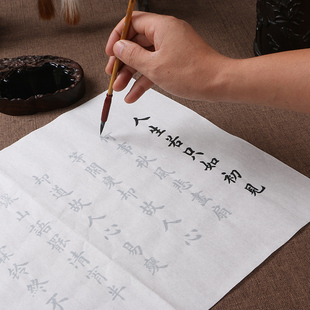 人生若只如初見
事秋風悲畫扇
等閒變却故人心
却道故人心易變
山語罷清宵半
鈴終不